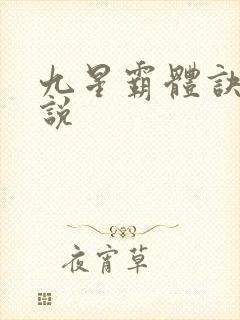 九星霸體訣
說
夜宵草